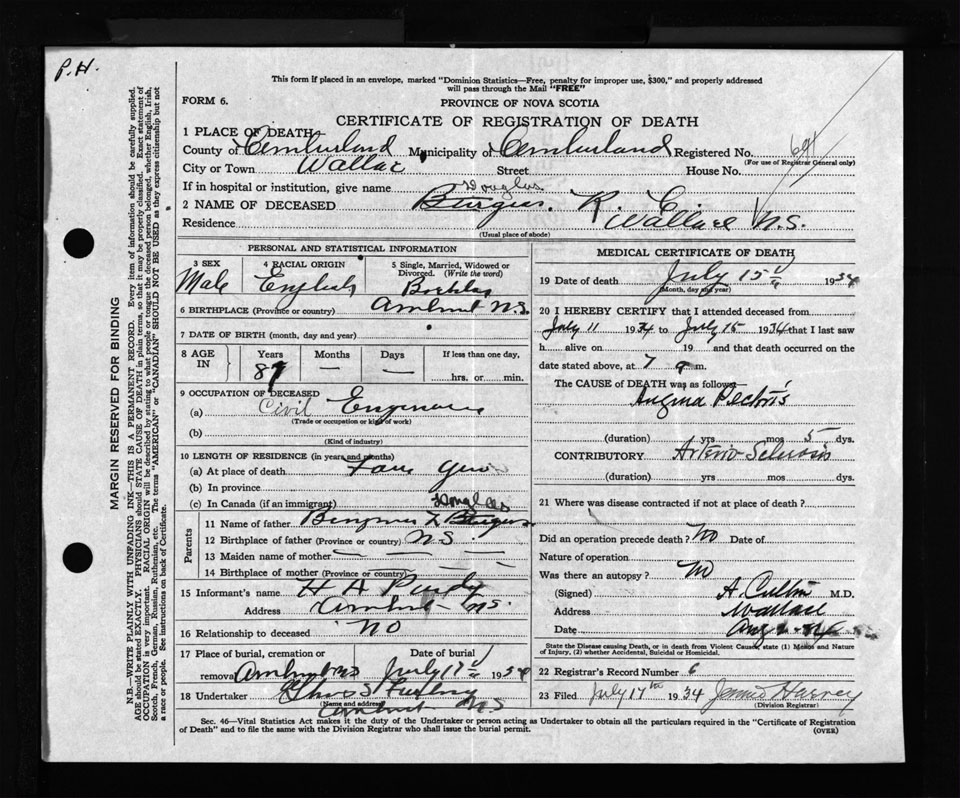 P.H.
This form if placed in an envelope, marked "Dominion Statistics—Free, penalty for improper use, $300," and properly addressed
will pass through the Mail "FREE"
FORM 6.
PROVINCE OF NOVA SCOTIA
CERTIFICATE OF REGISTRATION OF DEATH
1 PLACE OF DEATH
County of Cumberland Municipality of Cumberland Registered No.
(For use of Registrar General only)
City or Town Wallace Street House No.
If in hospital or institution, give name
Douglas
2 NAME OF DECEASED Burgess, R.
Residence Wallace N.S.
(Usual place of abode)
PERSONAL AND STATISTICAL INFORMATION
3 SEX
Male
4 RACIAL ORIGIN
English
5 Single, Married, Widowed or
Divorced. (Write the word)
6 BIRTHPLACE (Province or country) Amherst N.S.
7 DATE OF BIRTH (month, day and year)
8 AGE
IN
Years Months Days If less than one day,
— —
hrs. or min.
9 OCCUPATION OF DECEASED
(a) Civil Engineer
(Trade or occupation or kind of work)
(b)
(Kind of industry)
10 LENGTH OF RESIDENCE (in years and months)
(a) At place of death
(b) In province
(c) In Canada (if an immigrant)
Parents
Douglas
11 Name of father Burgess
12 Birthplace of father (Province or country) N.S.
13 Maiden name of mother — — — —
14 Birthplace of mother (Province or country) — — —
15 Informant's name H A Purdy
Address Amherst N.S.
16 Relationship to deceased No
17 Place of burial, cremation or
removal Amherst N.S.
Date of burial
July 17 1934
18 Undertaker
(Name and address)
Amherst N.S
MEDICAL CERTIFICATE OF DEATH
19 Date of death July 15 1934
(Month, day and year)
20 I HEREBY CERTIFY that I attended deceased from
July 11 1934 to July 15 1934 that I last saw
h alive on 19 and that death occurred on the
date stated above, at 7 m.
The CAUSE OF DEATH was as follows
Angina Pectoris
(duration) yrs mos 5 dys.
CONTRIBUTORY Arterio-Sclerosis
(duration) yrs mos dys.
21 Where was disease contracted if not at place of death?
Did an operation precede death? No Date of
Nature of operation
Was there an autopsy? No
(Signed) M.D.
Address Wallace
Date Aug
State the Disease causing Death, or in death from Violent Causes, state (1) Means and Nature
of Injury, (2) whether Accidental, Suicidal or Homicidal.
22 Registrar's Record Number 6
23 Filed July 17th 1934 Jennie Harvey
(Division Registrar)
Sec. 46—Vital Statistics Act makes it the duty of the Undertaker or person acting as Undertaker to obtain all the particulars required in the "Certificate of Registration
of Death" and to file the same with the Division Registrar who shall issue the burial permit.
(OVER)
MARGIN RESERVED FOR BINDING
N.B.—WRITE PLAINLY WITH UNFADING INK—THIS IS A PERMANENT RECORD. Every item of information should be carefully supplied.
AGE should be stated EXACTLY. PHYSICIANS should STATE CAUSE OF DEATH in plain terms, so that it may be properly classified. Exact statement of
OCCUPATION is very important. RACIAL ORIGIN will be described by stating to what people or tongue the deceased person belonged, whether English, Irish,
Scotch, French, German, Russian, Ruthenian, etc. The terms "AMERICAN" or "CANADIAN" SHOULD NOT BE USED as they express citizenship but not
a race or people. See instructions on back of Certificate.